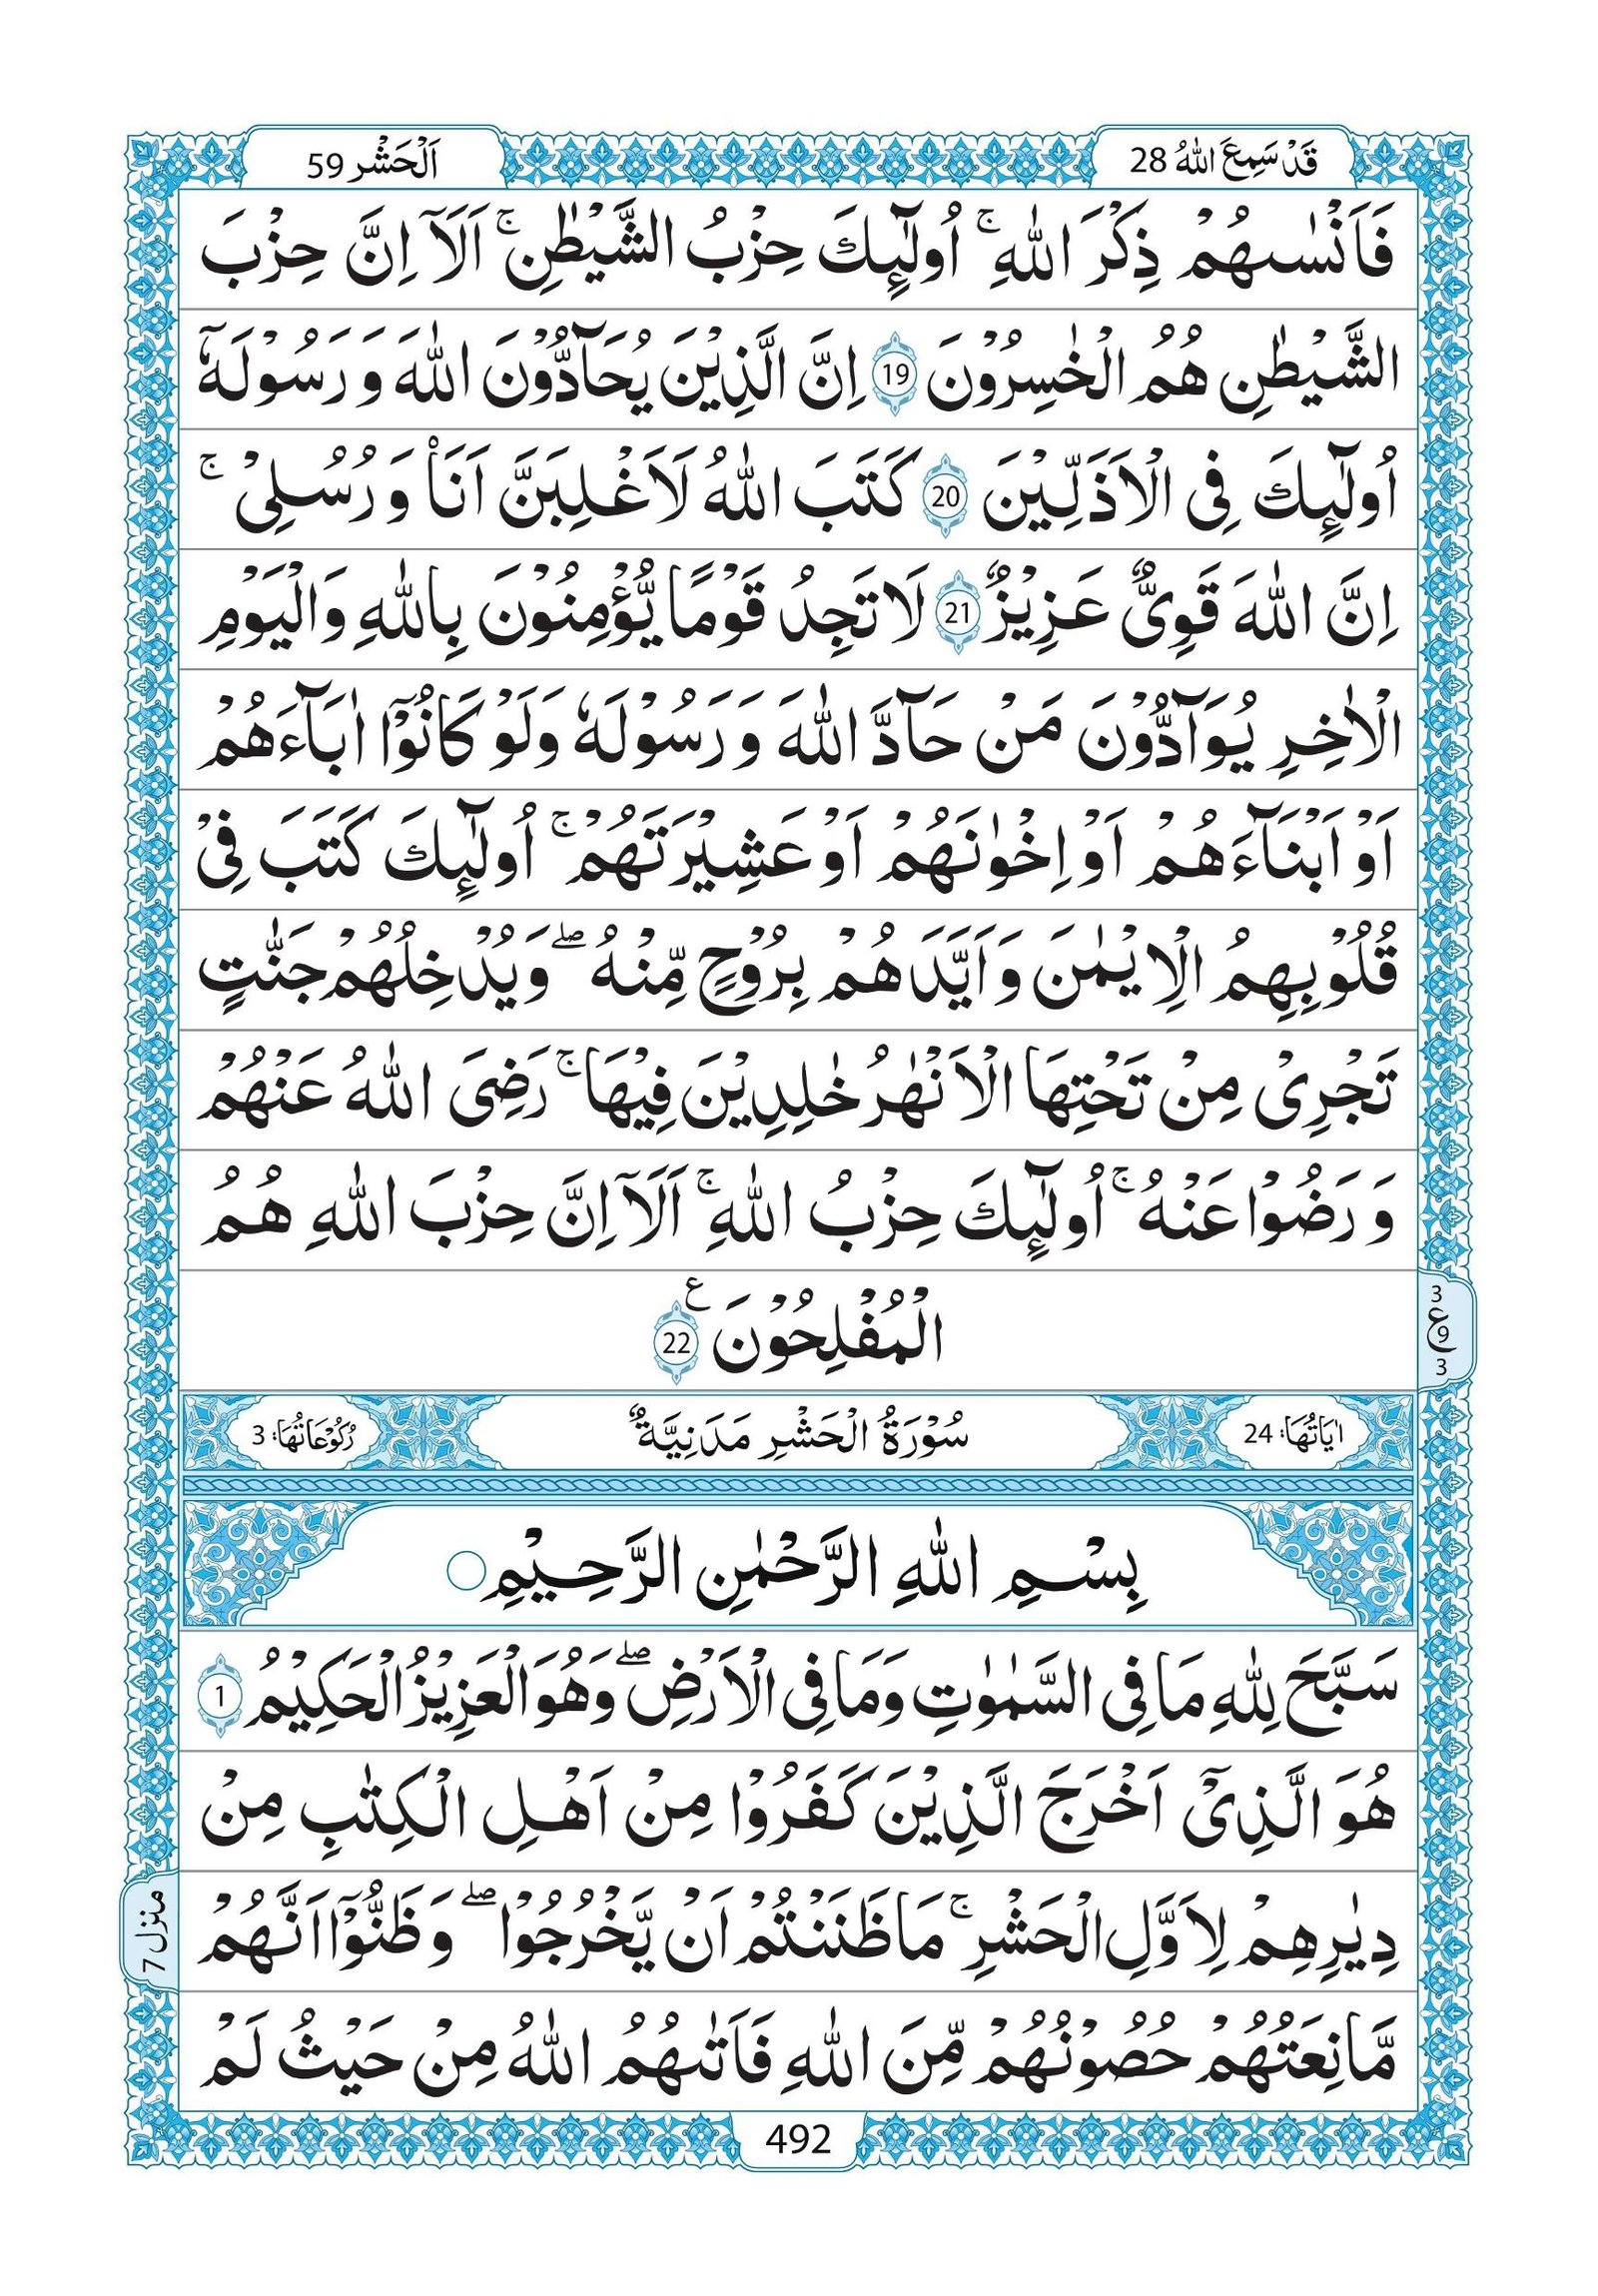 قَدْ سَمِعَ اللّٰهُ 28
اَلْحَشْر 59
فَاَنْسٰىهُمْ ذِكْرَ اللّٰهِ ۚ اُولٰٓئِكَ حِزْبُ الشَّيْطٰنِ ۚ اَلَاۤ اِنَّ حِزْبَ
الشَّيْطٰنِ هُمُ الْخٰسِرُوْنَ 19 اِنَّ الَّذِيْنَ يُحَآدُّوْنَ اللّٰهَ وَ رَسُوْلَهٗۤ
اُولٰٓئِكَ فِى الْاَذَلِّيْنَ 20 كَتَبَ اللّٰهُ لَاَغْلِبَنَّ اَنَا۠ وَ رُسُلِىْ ۚ
اِنَّ اللّٰهَ قَوِىٌّ عَزِيْزٌ 21 لَا تَجِدُ قَوْمًا يُّؤْمِنُوْنَ بِاللّٰهِ وَالْيَوْمِ
الْاٰخِرِ يُوَآدُّوْنَ مَنْ حَآدَّ اللّٰهَ وَ رَسُوْلَهٗ وَلَوْ كَانُوْۤا اٰبَآءَهُمْ
اَوْ اَبْنَآءَهُمْ اَوْ اِخْوٰنَهُمْ اَوْ عَشِيْرَتَهُمْ ۚ اُولٰٓئِكَ كَتَبَ فِىْ
قُلُوْبِهِمُ الْاِيْمٰنَ وَاَيَّدَهُمْ بِرُوْحٍ مِّنْهُ ۖ وَيُدْخِلُهُمْ جَنّٰتٍ
تَجْرِىْ مِنْ تَحْتِهَا الْاَنْهٰرُ خٰلِدِيْنَ فِيْهَا ۚ رَضِىَ اللّٰهُ عَنْهُمْ
وَ رَضُوْا عَنْهُ ۚ اُولٰٓئِكَ حِزْبُ اللّٰهِ ۚ اَلَاۤ اِنَّ حِزْبَ اللّٰهِ هُمُ
الْمُفْلِحُوْنَ ع 22
3 ع 9 3
اٰيَاتُهَا: 24 سُوْرَةُ الْحَشْرِ مَدَنِيَّةٌ رُكُوْعَاتُهَا: 3
بِسْمِ اللّٰهِ الرَّحْمٰنِ الرَّحِيْمِ
سَبَّحَ لِلّٰهِ مَا فِى السَّمٰوٰتِ وَمَا فِى الْاَرْضِ ۖ وَهُوَ الْعَزِيْزُ الْحَكِيْمُ 1
هُوَ الَّذِىْۤ اَخْرَجَ الَّذِيْنَ كَفَرُوْا مِنْ اَهْلِ الْكِتٰبِ مِنْ
دِيٰرِهِمْ لِاَوَّلِ الْحَشْرِ ۚ مَا ظَنَنْتُمْ اَنْ يَّخْرُجُوْا ۖ وَظَنُّوْۤا اَنَّهُمْ
مَّانِعَتُهُمْ حُصُوْنُهُمْ مِّنَ اللّٰهِ فَاَتٰىهُمُ اللّٰهُ مِنْ حَيْثُ لَمْ
منزل 7
492